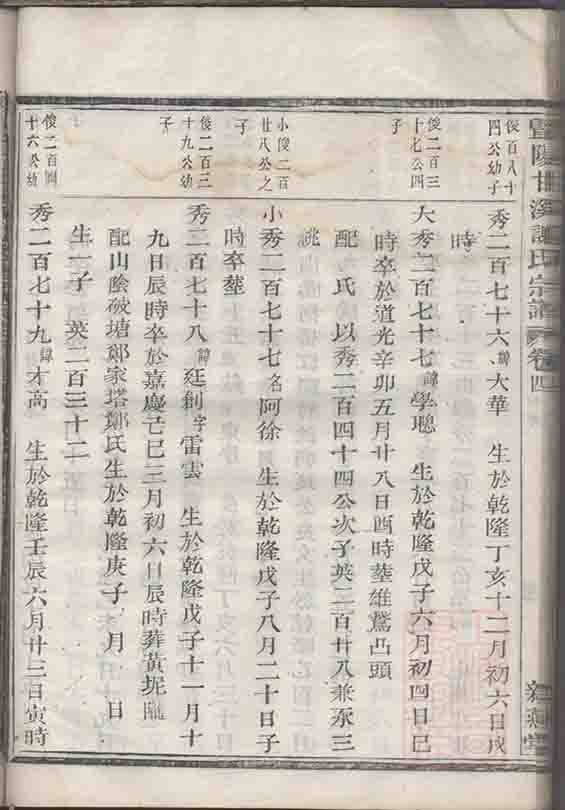 暨陽甘溪 氏宗譜 卷四
俊百八十
四公幼子
秀二百七十六諱大華 生於乾隆丁亥十二月初六日戌
時
俊二百三
十七公四
子
大秀二百七十七諱學聰 生於乾隆戊子六月初四日巳
時卒於道光辛卯五月廿八日酉時塟雄鵞凸頭
配 氏 以秀二百四十四公次子英二百廿八兼承三
祧
小俊二百
廿八公之
子
小秀二百七十七名阿徐 生於乾隆戊子八月二十日子
時卒塟
俊二百三
十九公幼
子
秀二百七十八諱廷創字雷雲 生於乾隆戊子十一月十
九日辰時卒於嘉慶己巳三月初六日辰時葬黃坭
配山陰破塘鄭家塔鄭氏生於乾隆庚子 月 日
生一子 英二百三十二
俊二百四
十六公幼
秀二百七十九諱才高 生於乾隆壬辰六月廿三日寅時